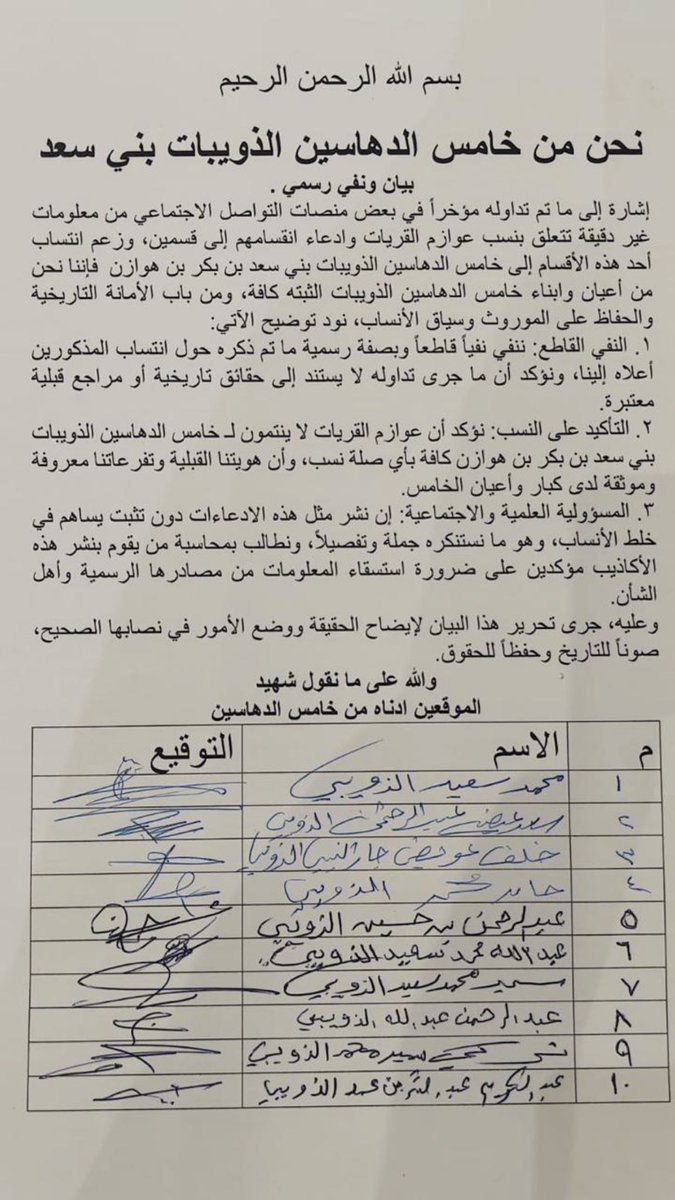 بسم الله الرحمن الرحيم
نحن من خامس الدهاسين الذويبات بني سعد
بيان ونفي رسمي .
إشارة إلى ما تم تداوله مؤخراً في بعض منصات التواصل الاجتماعي من معلومات
غير دقيقة تتعلق بنسب عوازم القريات وادعاء انقسامهم إلى قسمين، وزعم انتساب
أحد هذه الأقسام إلى خامس الدهاسين الذويبات بني سعد بن بكر بن هوازن فإننا نحن
من أعيان وابناء خامس الدهاسين الذويبات الثبته كافة، ومن باب الأمانة التاريخية
والحفاظ على الموروث وسياق الأنساب، نود توضيح الآتي:
١. النفي القاطع: ننفي نفياً قاطعاً وبصفة رسمية ما تم ذكره حول انتساب المذكورين
أعلاه إلينا، ونؤكد أن ما جرى تداوله لا يستند إلى حقائق تاريخية أو مراجع قبلية
معتبرة.
٢. التأكيد على النسب: نؤكد أن عوازم القريات لا ينتمون لـ خامس الدهاسين الذويبات
بني سعد بن بكر بن هوازن كافة بأي صلة نسب، وأن هويتنا القبلية وتفرعاتنا معروفة
وموثقة لدى كبار وأعيان الخامس.
٣. المسؤولية العلمية والاجتماعية: إن نشر مثل هذه الادعاءات دون تثبت يساهم في
خلط الأنساب، وهو ما نستنكره جملة وتفصيلاً، ونطالب بمحاسبة من يقوم بنشر هذه
الأكاذيب مؤكدين على ضرورة استسقاء المعلومات من مصادرها الرسمية وأهل
الشأن.
وعليه، جرى تحرير هذا البيان لإيضاح الحقيقة ووضع الأمور في نصابها الصحيح،
صوناً للتاريخ وحفظاً للحقوق.
والله على ما نقول شهيد
الموقعين ادناه من خامس الدهاسين
م الاسم التوقيع
١ محمد سعيد الذويبي
٢ سعد عيضه عبد الرحمن الذويبي
٣ خلف عويض جار النبي الذويبي
٤ حامد محمد الذويبي
٥ عبد الرحمن بن حسين الذويبي
٦ عبد الله محمد سعيد الذويبي
٧ سمير محمد سعيد الذويبي
٨ عبد الرحمن عبد لله الذويبي
٩ محمد الذويبي
١٠ عبد الكريم الذويبي